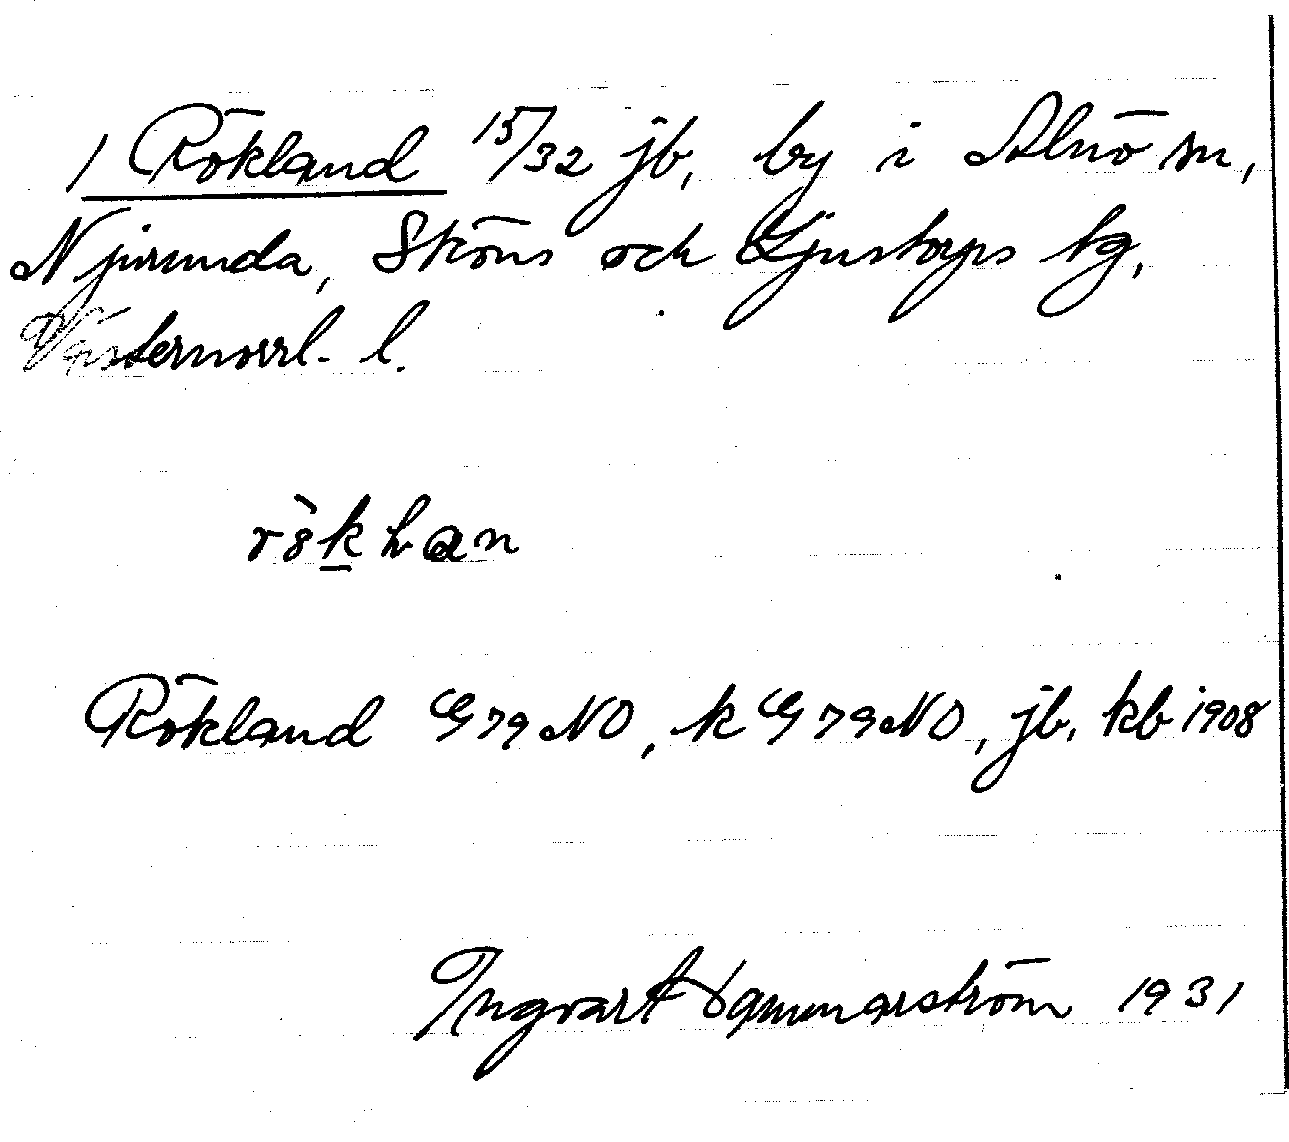 1 Rökland 15/32 jb, by i Alnö sn,
Njurunda, Sköns och Ljustorps tg,
Västernorrl. l.
Rökland G79NO, k G79NO, jb, kb 1908
Ingvart Hammarström 1931